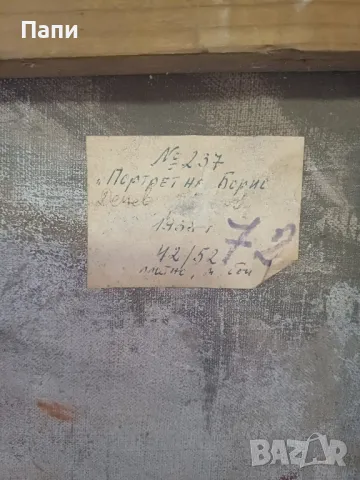 Папи
№ 237
"Портрет на Борис
Денев
42/52
72
платно, м. бои
BAZAR